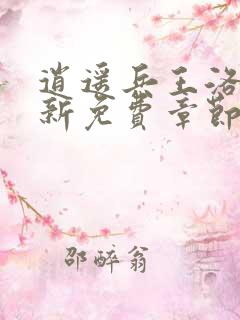 逍遥兵王洛
新免費章節
邵醉翁